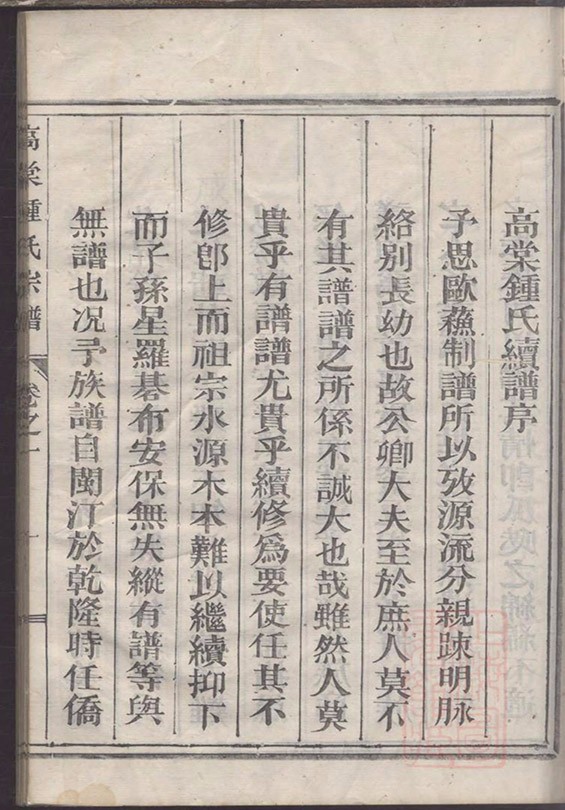 高棠鍾氏續譜序
予思歐蘇制譜所以攷源流分親疎明脉
絡別長幼也故公卿大夫至於庶人莫不
有其譜譜之所係不誠大也哉雖然人莫
貴乎有譜譜尤貴乎續修爲要使任其不
修卽上而祖宗水源木本難以繼續抑下
而子孫星羅碁布安保無失縱有譜等與
無譜也况予族譜自閩汀於乾隆時任僑
高棠鍾氏宗譜 卷之一